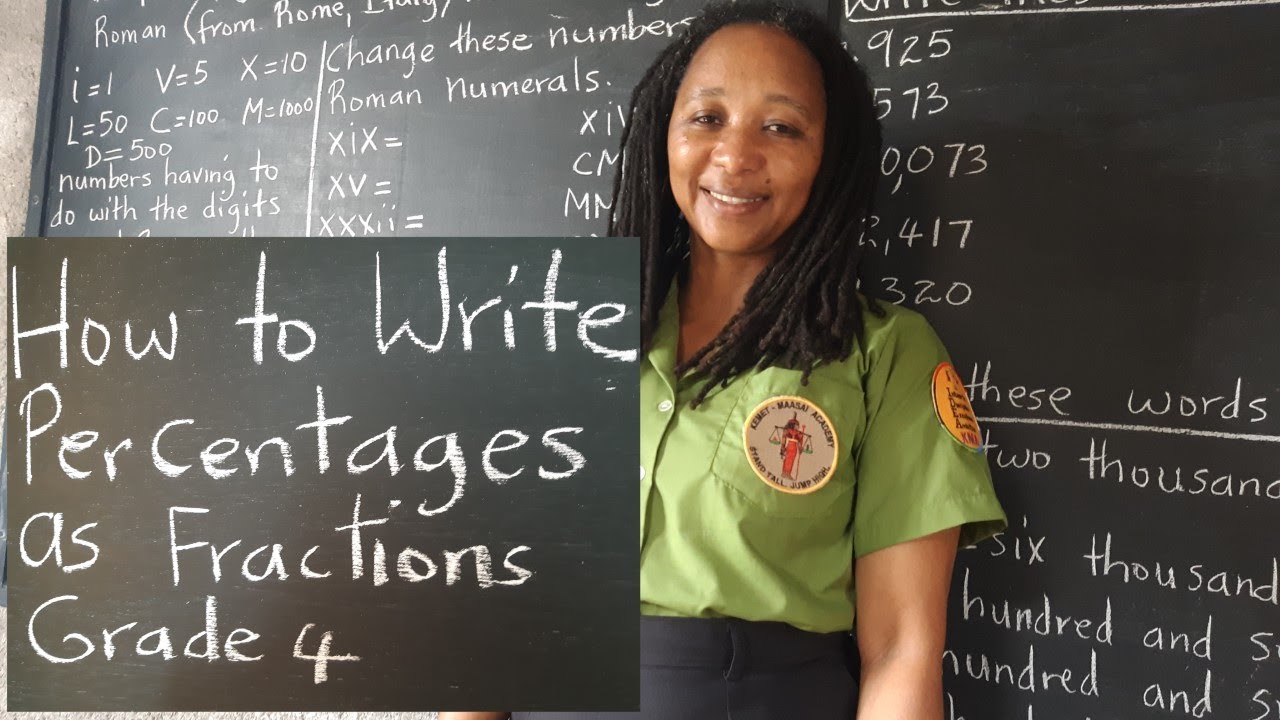 Roman (from Rome, Italy)
i=1 V=5 X=10
L=50 C=100 M=1000
D=500
numbers having to
do with the digits
Change these numbers
Roman numerals.
xix=
xv=
xxxii=
925
573
0,073
2,417
320
these words
two thousand
six thousand
hundred and
hundred and
KEMET-MAASAI ACADEMY
STAND TALL, JUMP HIGH
How to Write
Percentages
as Fractions
Grade 4